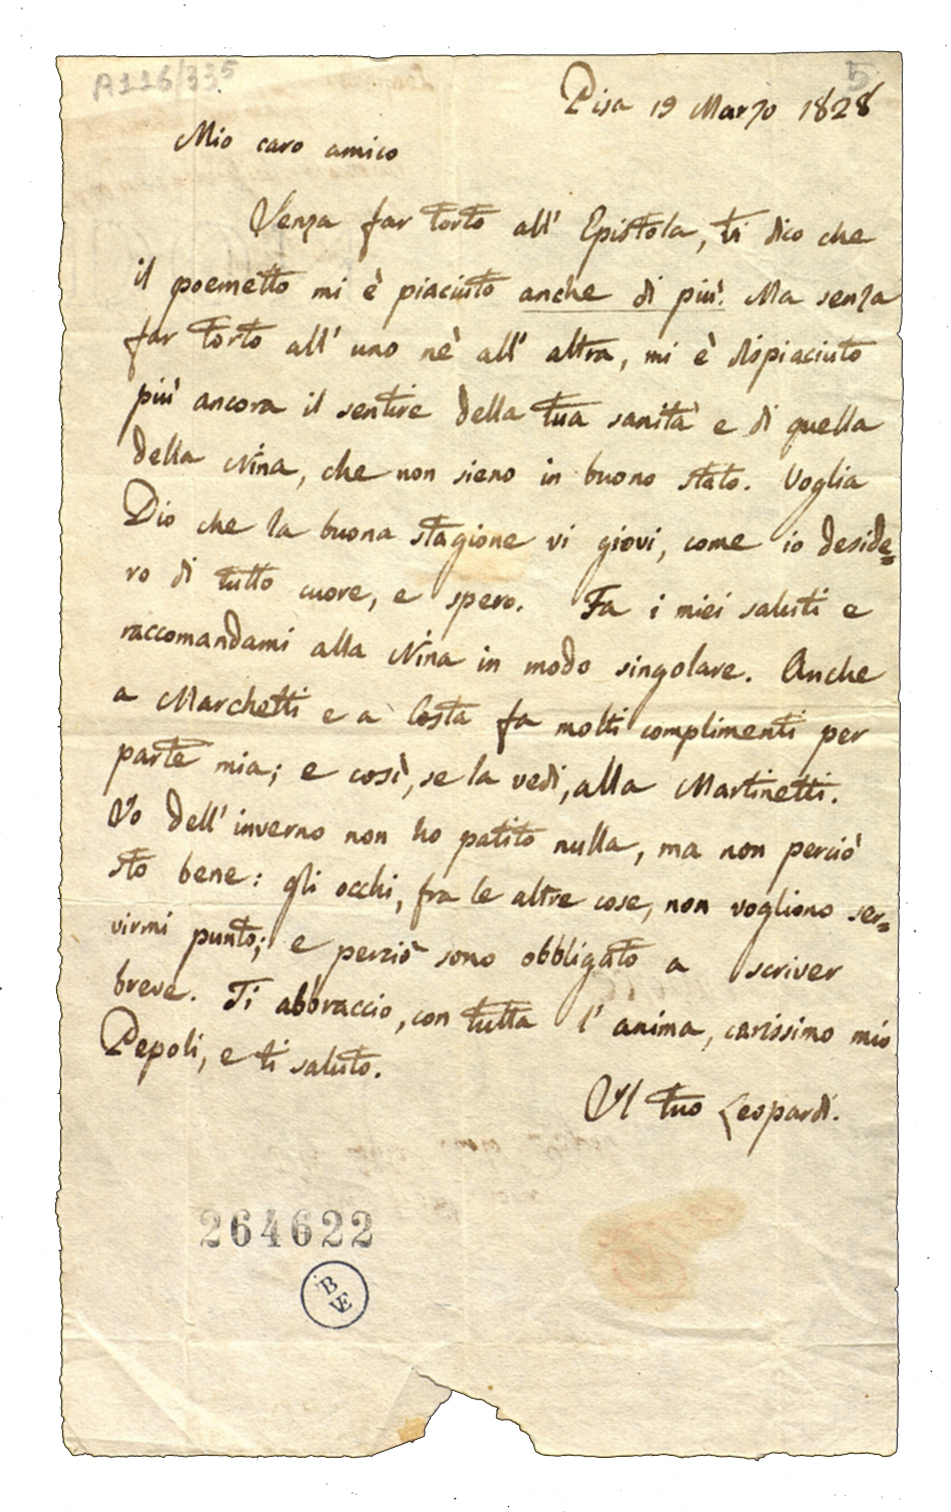 A116/335
5
Pisa 19 Marzo 1828
Mio caro amico
Senza far torto all' Epistola, ti dico che
il poemetto mi è piaciuto anche di più. Ma senza
far torto all' uno nè all' altra, mi è dispiaciuto
più ancora il sentire della tua sanità e di quella
della Nina, che non sieno in buono stato. Voglia
Dio che la buona stagione vi giovi, come io deside=
ro di tutto cuore, e spero. Fa i miei saluti e
raccomandami alla Nina in modo singolare. Anche
a Marchetti e a Costa fa molti complimenti per
parte mia; e così, se la vedi, alla Martinetti.
Io dell' inverno non ho patito nulla, ma non perciò
sto bene: gli occhi, fra le altre cose, non vogliono ser=
virmi punto; e perciò sono obbligato a scriver
breve. Ti abbraccio, con tutta l' anima, carissimo mio
Pepoli, e ti saluto.
Il tuo Leopardi.
264622
B
VE